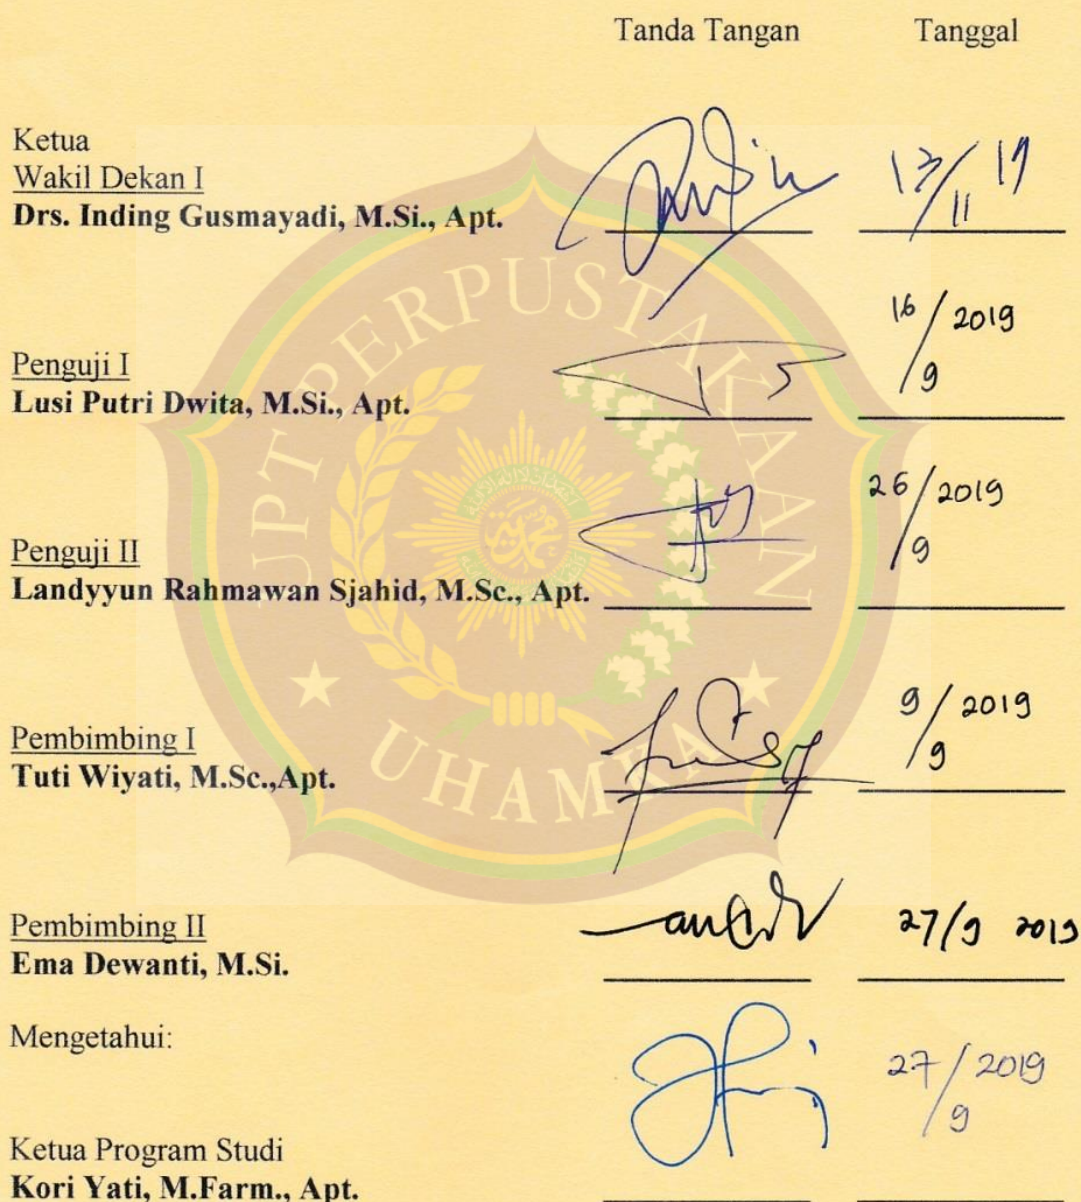 Tanda Tangan Tanggal
Ketua
Wakil Dekan I
Drs. Inding Gusmayadi, M.Si., Apt.
13/11 19
16/9 2019
Penguji I
Lusi Putri Dwita, M.Si., Apt.
26/9 2019
Penguji II
Landyyun Rahmawan Sjahid, M.Sc., Apt.
9/9 2019
Pembimbing I
Tuti Wiyati, M.Sc.,Apt.
Pembimbing II 27/9 2019
Ema Dewanti, M.Si.
Mengetahui:
27/9 2019
Ketua Program Studi
Kori Yati, M.Farm., Apt.
UPT PERPUSTAKAAN
UHAMKA